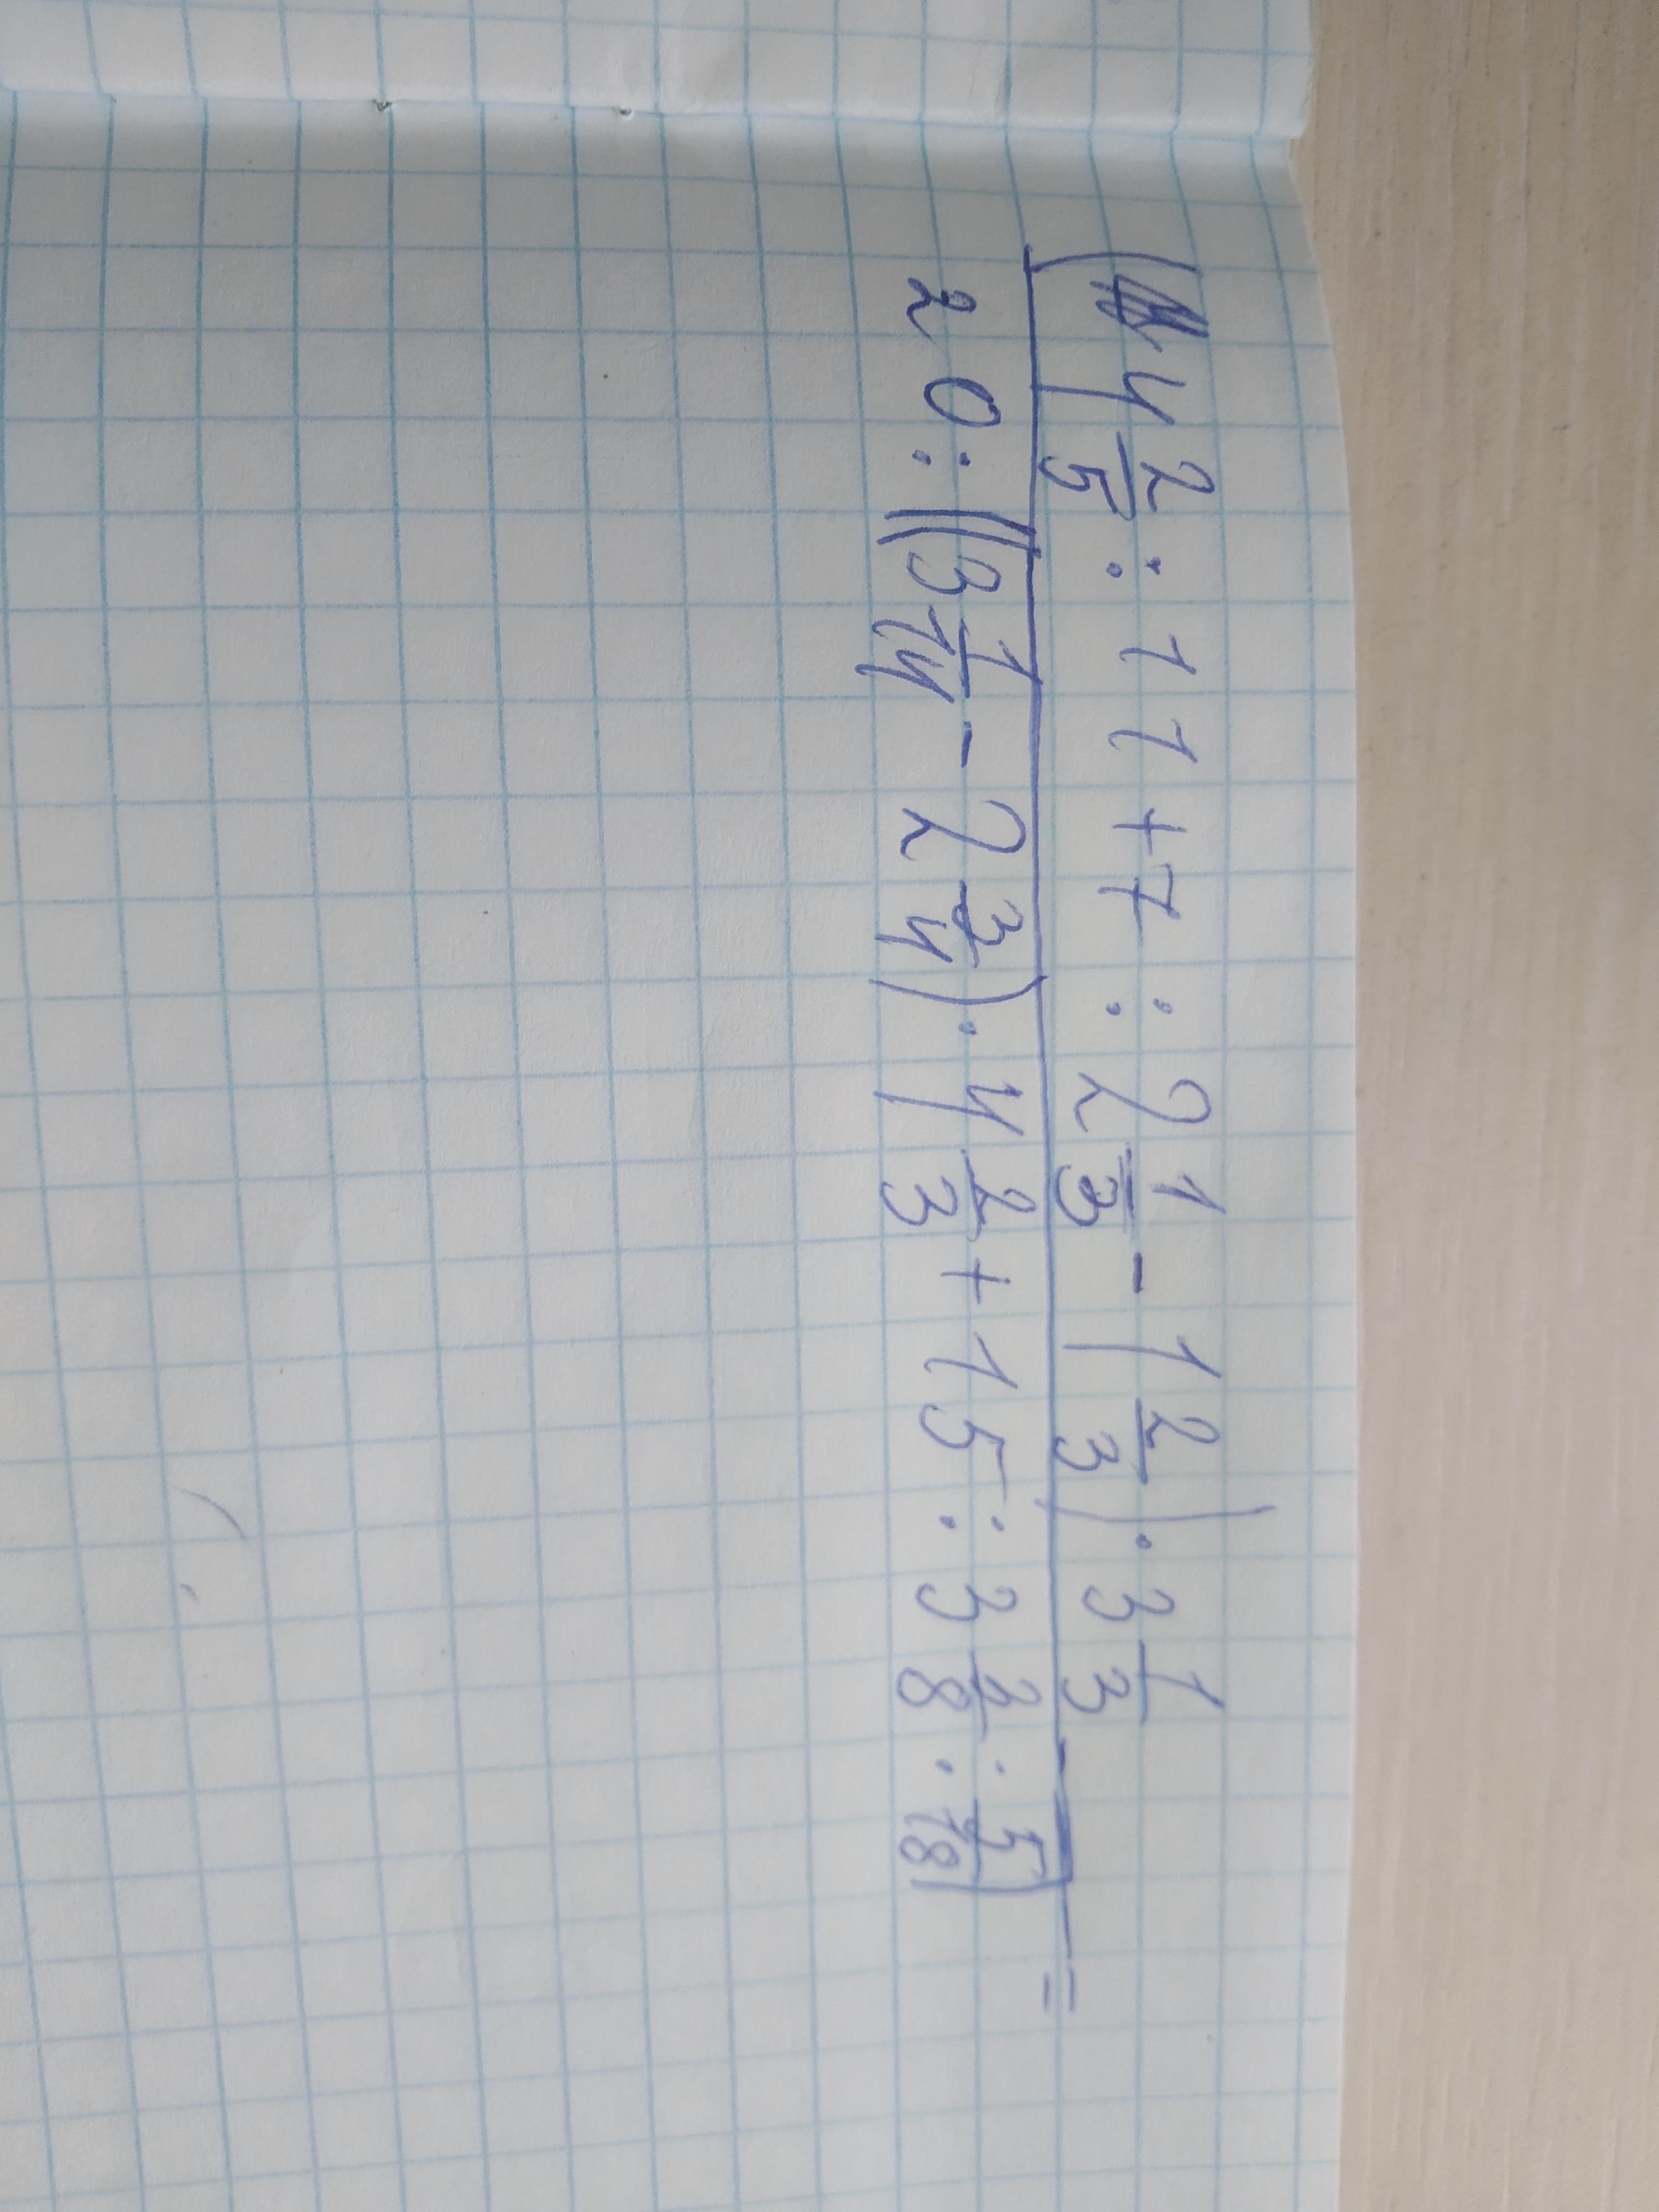 (4 2/5 : 11 + 7 : 2 1/3 - 1 2/3) · 3 1/3
20 : ((3 1/14 - 2 3/4) · 4 2/3 + 15 : 3 3/8 : 5/18) =